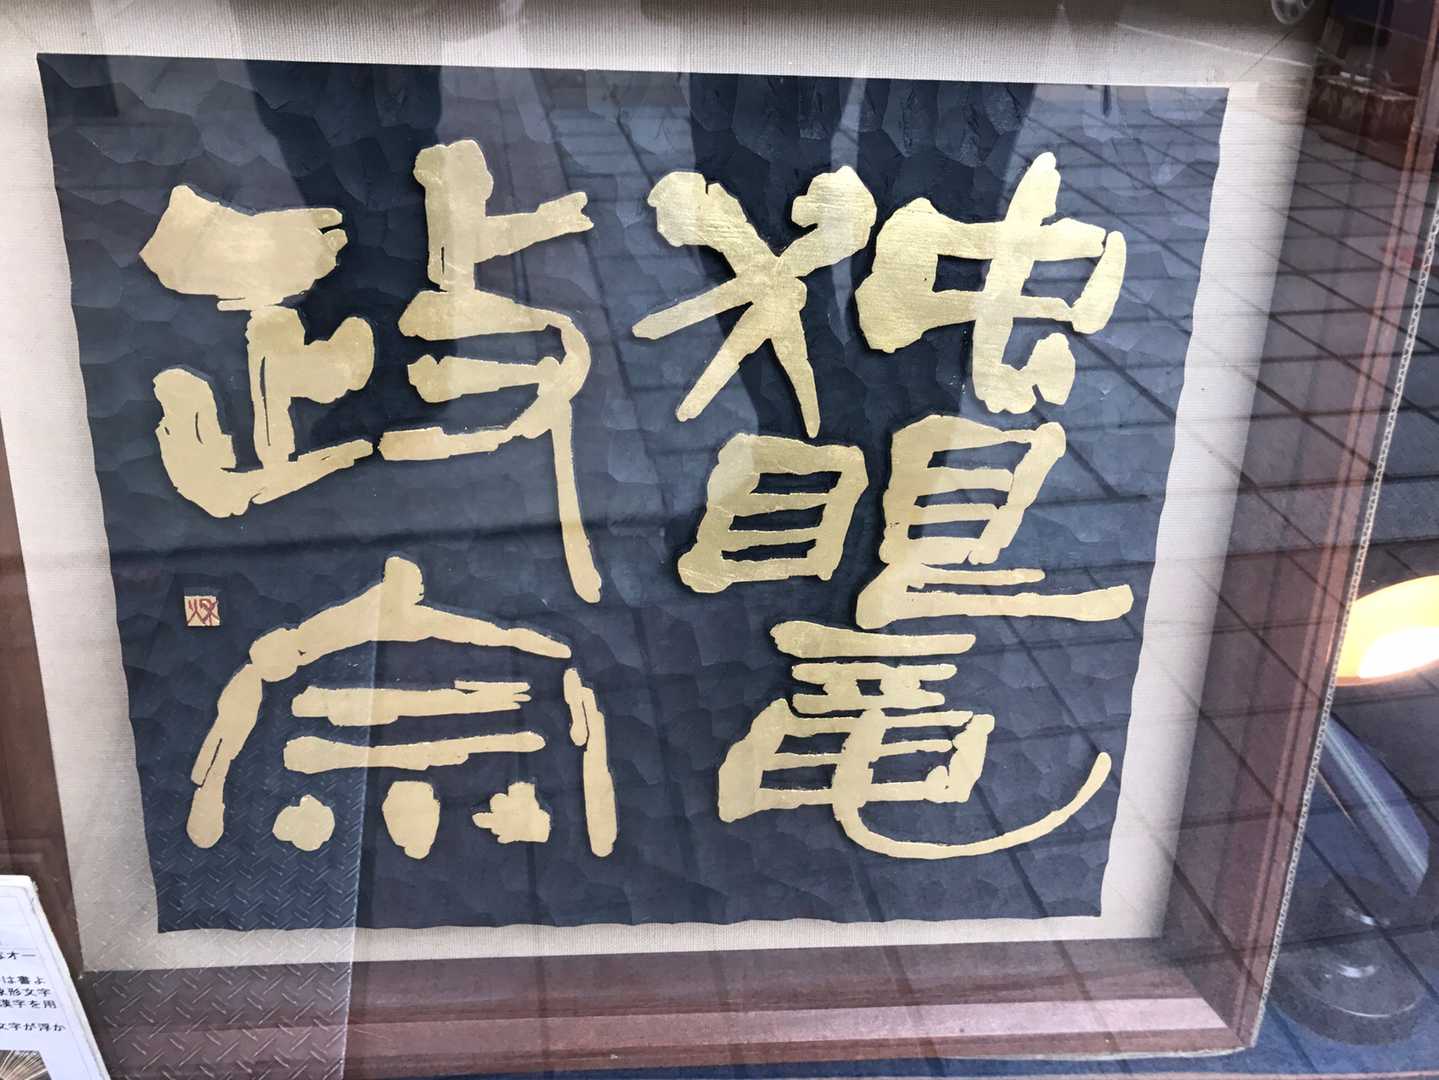 独眼竜
政宗
オー
は書よ
象形文字
漢字を用
文字が浮か